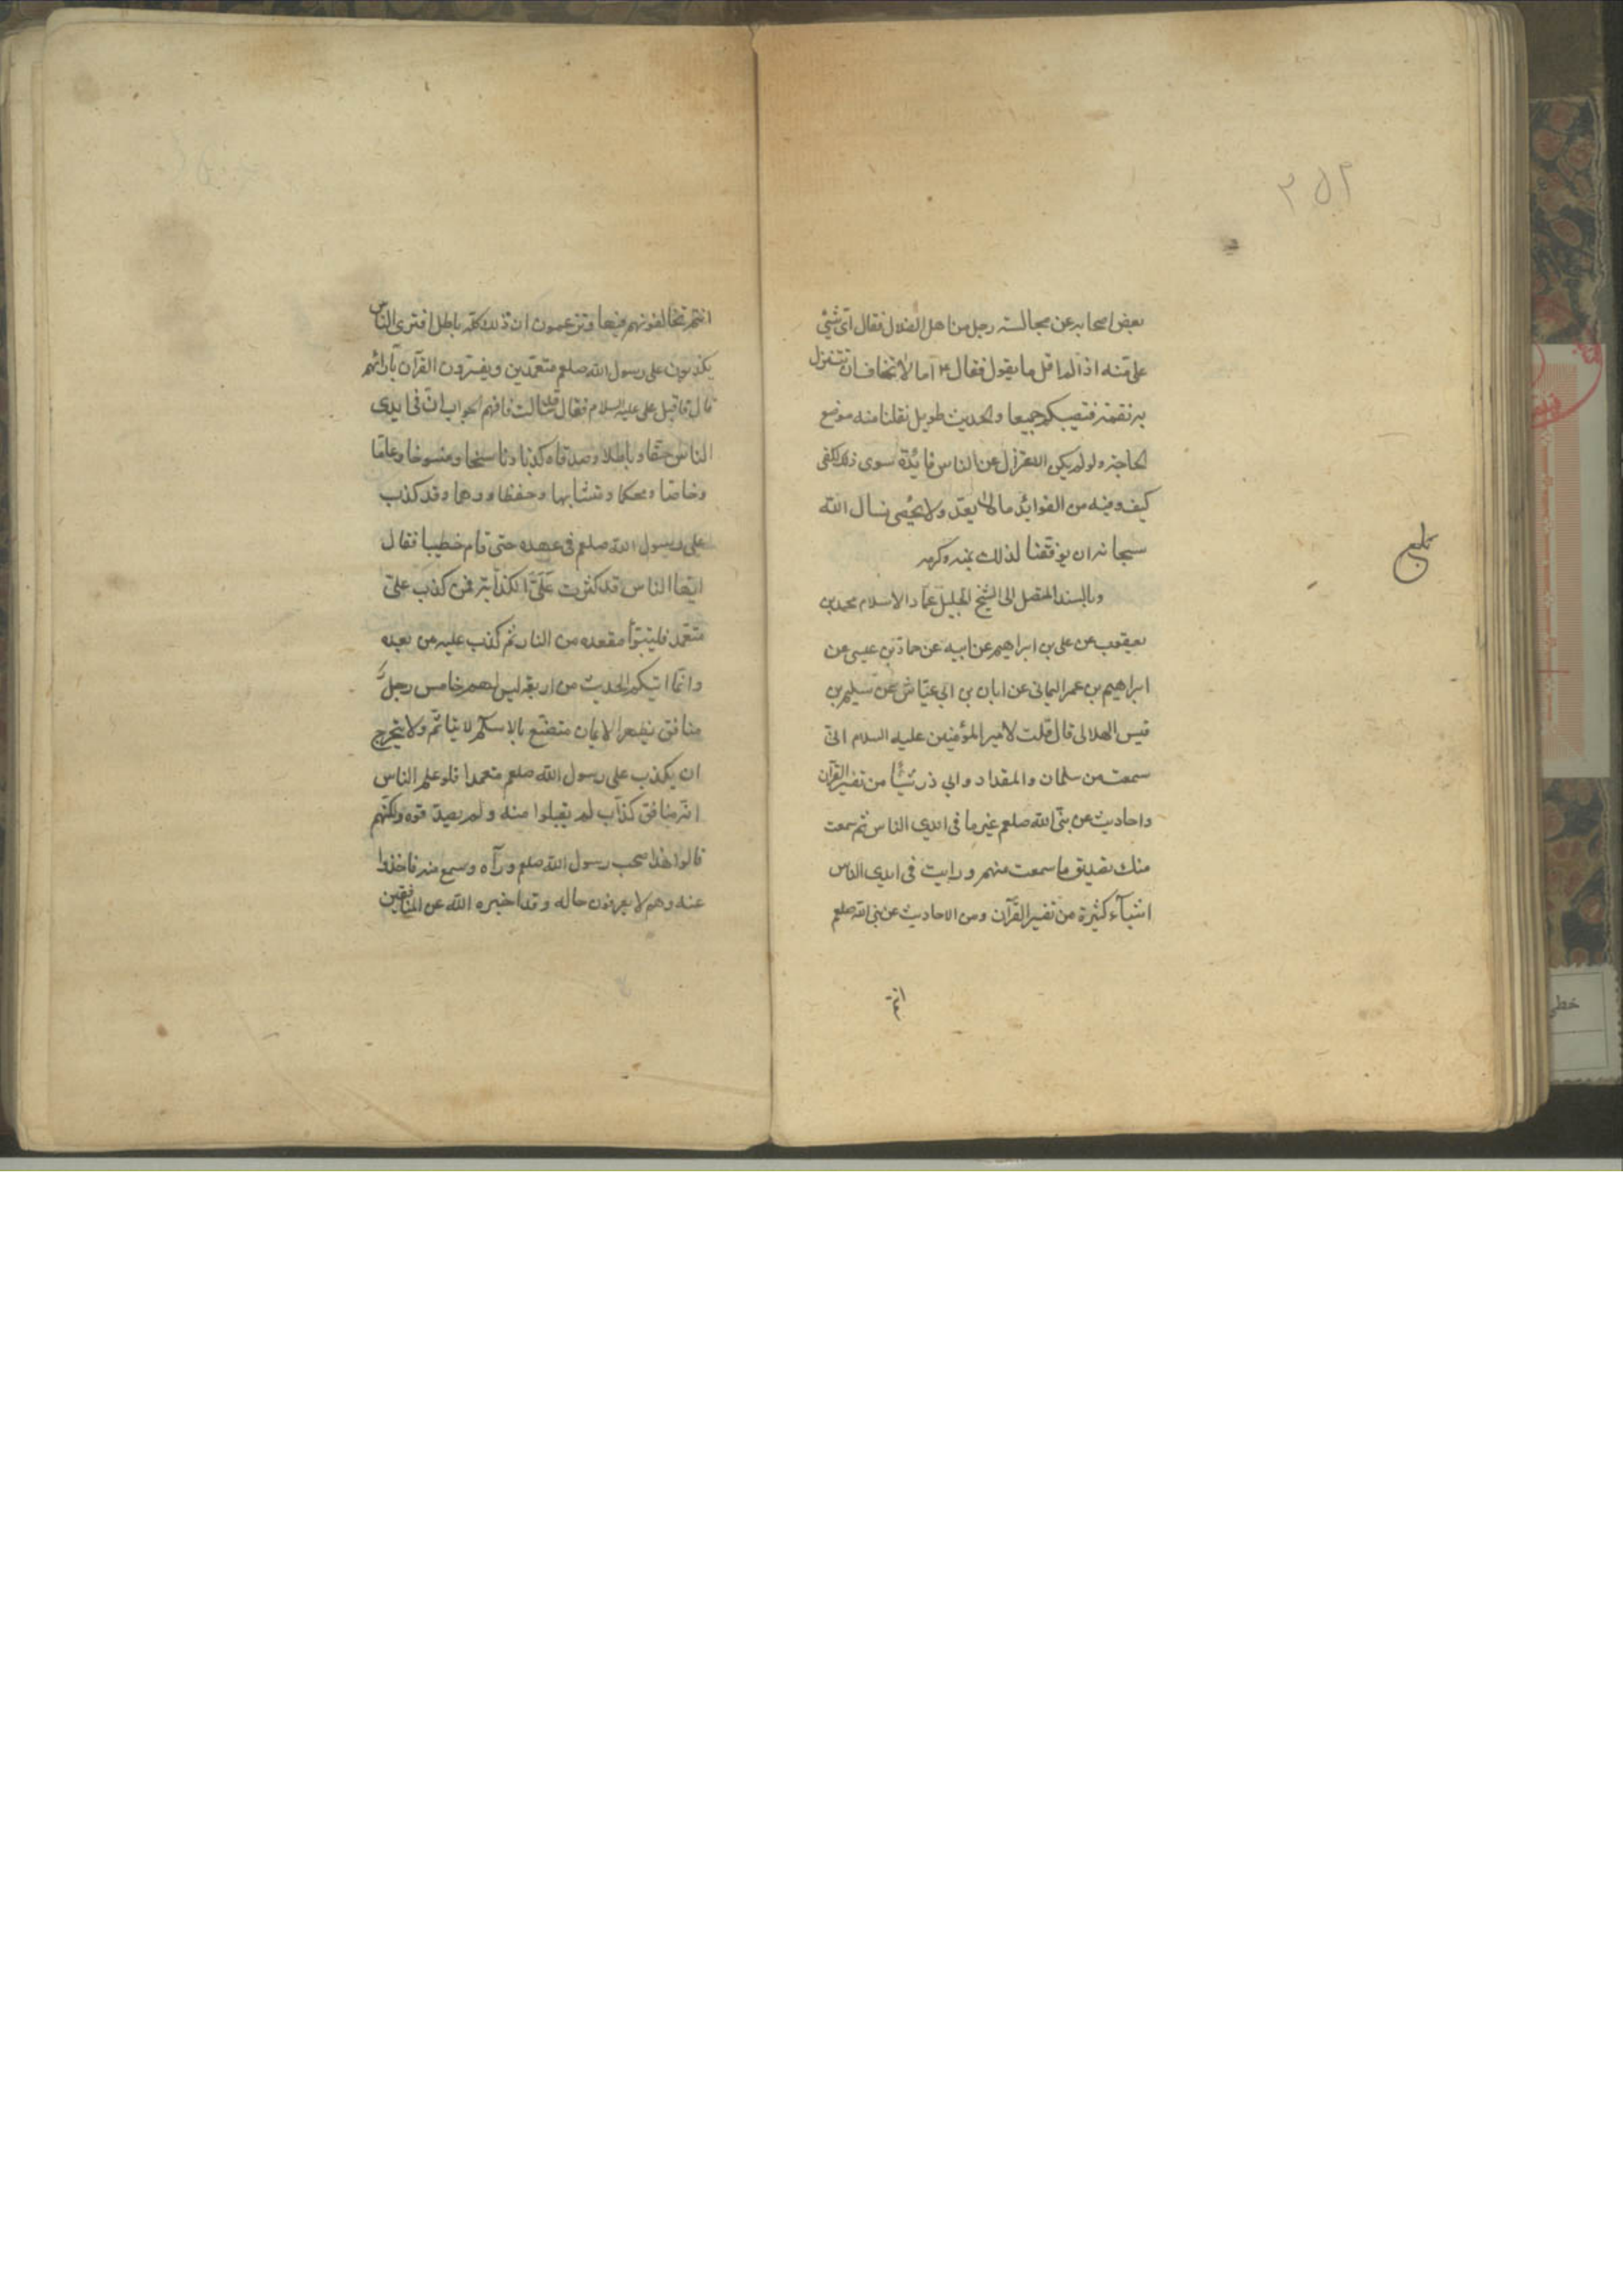 ۲۵۲
بعض اصحابه عن مجالسته رجل من اهل الضلال فقال ای شئ
علی منه اذا لم اقل ما يقول فقال ع اما لا تخاف ان تتنزل
به نقمة فتصيبكم جميعا والحديث طويل نقلنا منه موضع
الحاجة ولو لم يكن الاعتزال عن الناس فائدة سوی ذلك لكفی
كيف وفيه من الفوايد ما لا يعد ولا يحصی نسال الله
سبحانه ان يوفقنا لذلك بمنه وكرمه
وبالسند المتصل الی الشيخ الجليل عماد الاسلام محمد بن
يعقوب عن علی بن ابراهيم عن ابيه عن حماد بن عيسی عن
ابراهيم بن عمر اليمانی عن ابان بن ابی عياش عن سليم بن
قيس الهلالی قال قلت لامير المؤمنين عليه السلام انی
سمعت من سلمان والمقداد وابی ذر شيئا من تفسير القرآن
واحاديث عن نبی الله صلعم غير ما فی ايدی الناس ثم سمعت
منك تصديق ما سمعت منهم ورايت فی ايدی الناس
اشيآء كثيرة من تفسير القرآن ومن الاحاديث عن نبی الله صلعم
انتم
انتم تخالفونهم فيها وتزعمون ان ذلك كله باطل افتری الناس
يكذبون علی رسول الله صلعم متعمدين ويفسرون القرآن بآرائهم
قال فاقبل علی عليه السلام فقال قد سالت فافهم الجواب ان فی ايدی
الناس حقا وباطلا وصدقا وكذبا وناسخا ومنسوخا وعاما
وخاصا ومحكما ومتشابها وحفظا ووهما وقد كذب
علی رسول الله صلعم فی عهده حتی قام خطيبا فقال
ايها الناس قد كثرت علی الكذابة فمن كذب علی
متعمد فليتبوأ مقعده من النار ثم كذب عليه من بعده
وانما اتيكم الحديث من اربعة ليس لهم خامس رجل
منافق يظهر الايمان متصنع بالاسلام لا يتاثم ولا يتحرج
ان يكذب علی رسول الله صلعم متعمدا فلو علم الناس
انه منافق كذاب لم يقبلوا منه ولم يصدقوه ولكنهم
قالوا هذا صحب رسول الله صلعم ورآه وسمع منه فاخذوا
عنه وهم لا يعرفون حاله وقد اخبره الله عن المنافقين
خطی